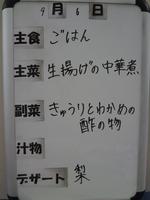 9月6日
主食 ごはん
主菜 生揚げの中華煮
副菜 きゅうりとわかめの
酢の物
汁物
デザート 梨